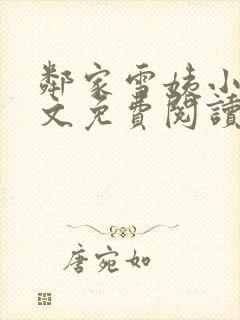 鄰家雪姨小
文免費閱讀
唐宛如